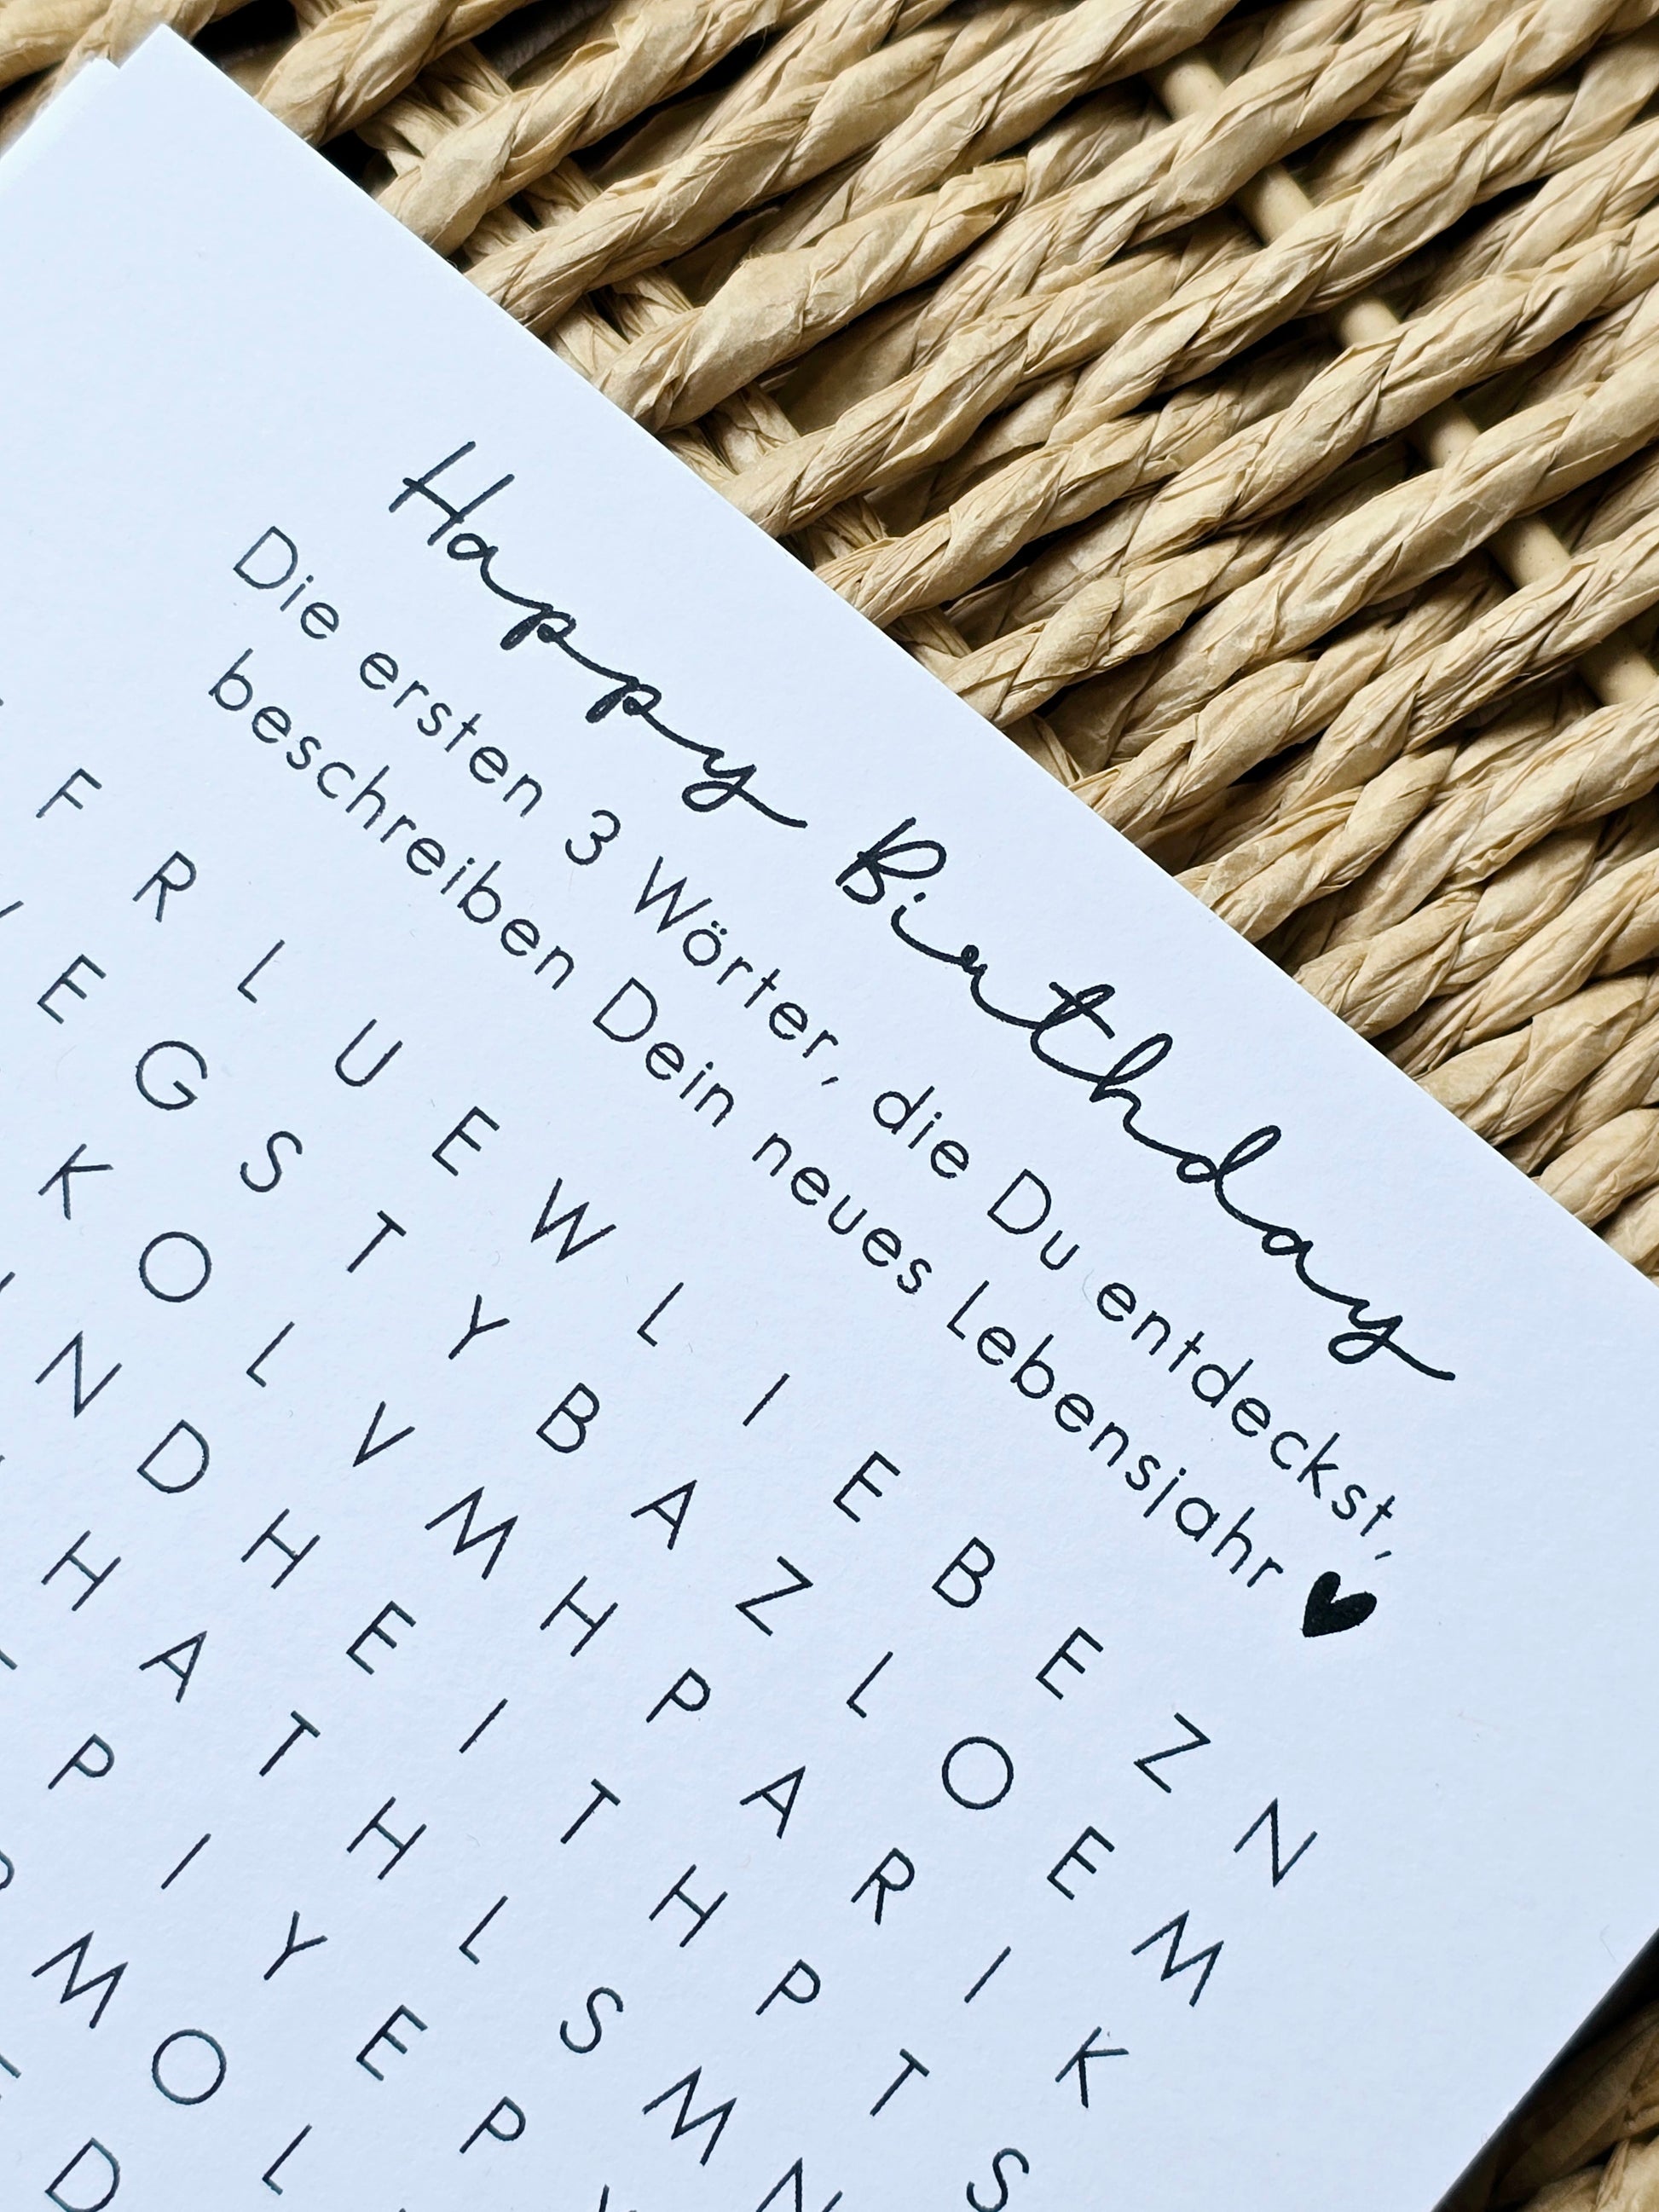 Happy Birthday
Die ersten 3 Wörter, die Du entdeckst,
beschreiben Dein neues Lebensjahr
F R L U E W L I E B E Z N
E G S T Y B A Z L O E M
K O L V M H P A R I K
N D H E I T H P T S
H A T H L S M N
P I Y E P
M O L
D